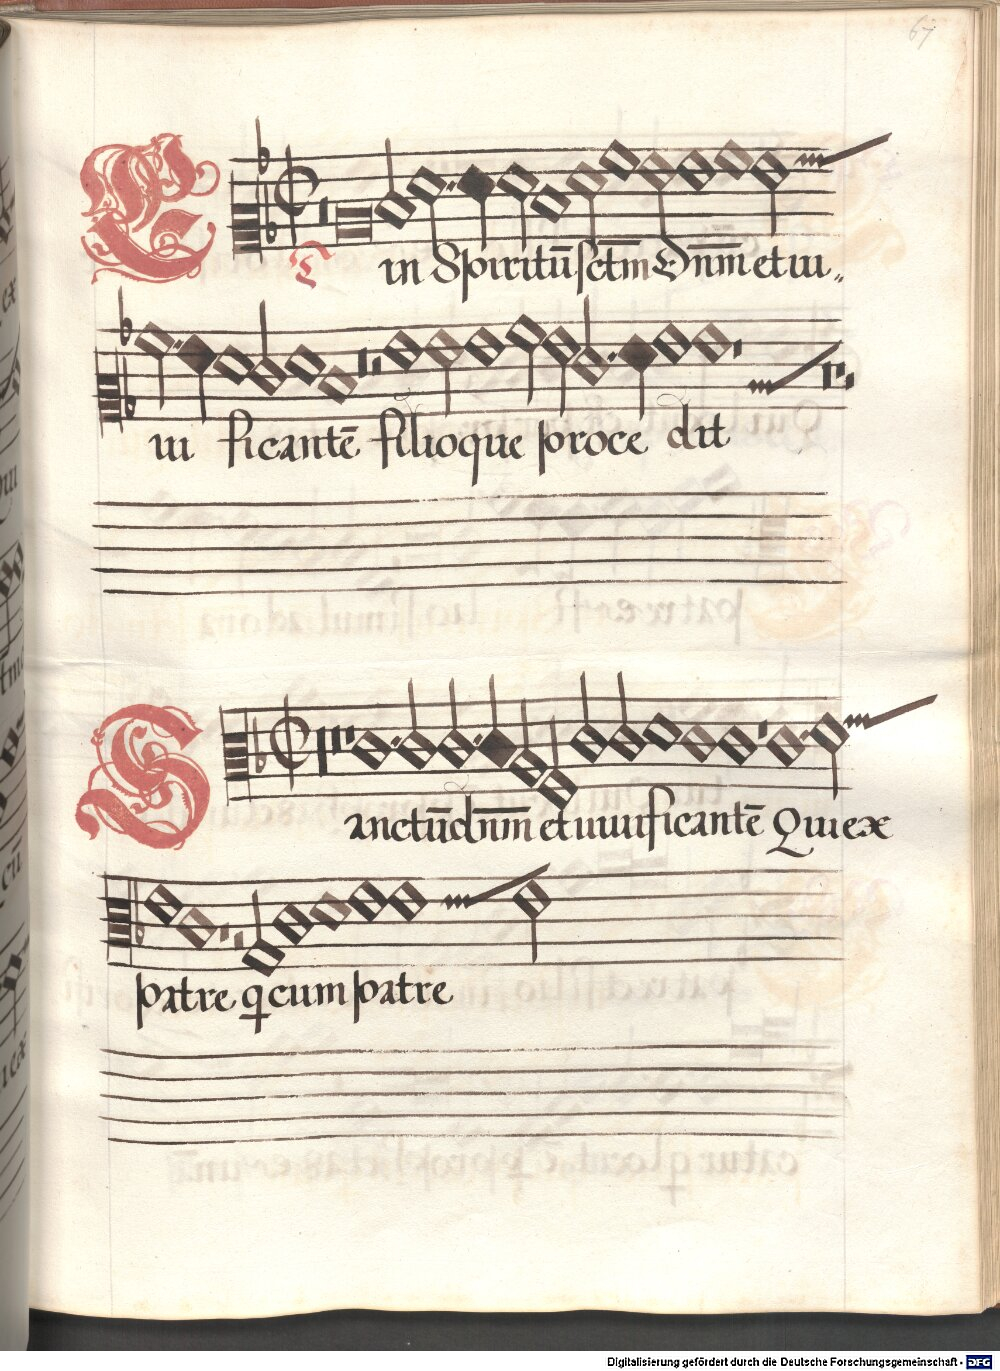 67
Et in Spiritū sctm̄ Dn̄m et ui„
ui ficantē filioque proce dit
Sanctū dn̄m et uiuificantē Qui ex
patre q cum patre
Digitalisierung gefördert durch die Deutsche Forschungsgemeinschaft - DFG